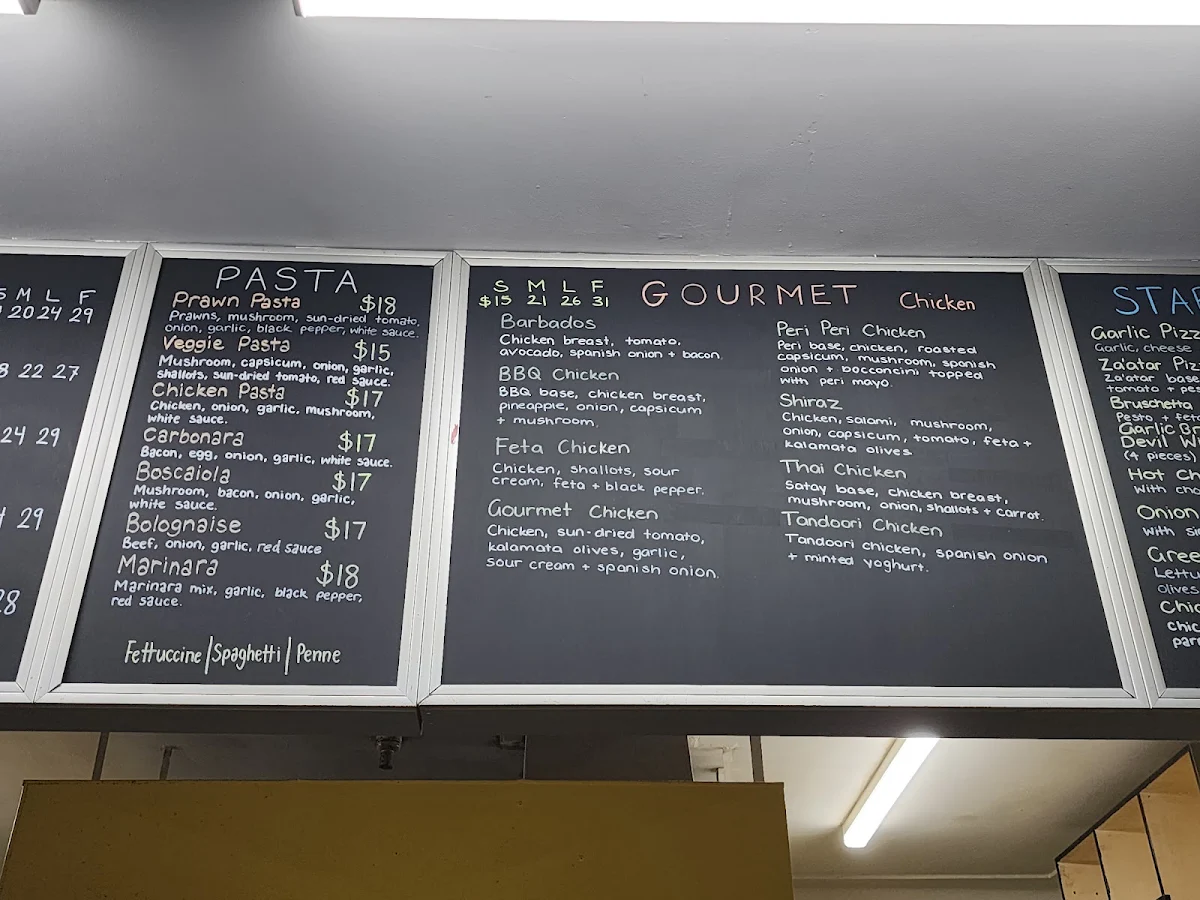 S M L F
20 24 29
22 27
24 29
29
28
PASTA
Prawn Pasta $18
Prawns, mushroom, sun-dried tomato,
onion, garlic, black pepper, white sauce.
Veggie Pasta $15
Mushroom, capsicum, onion, garlic,
shallots, sun-dried tomato, red sauce.
Chicken Pasta $17
Chicken, onion, garlic, mushroom,
white sauce.
Carbonara $17
Bacon, egg, onion, garlic, white sauce.
Boscaiola $17
Mushroom, bacon, onion, garlic,
white sauce.
Bolognaise $17
Beef, onion, garlic, red sauce
Marinara $18
Marinara mix, garlic, black pepper,
red sauce.
Fettuccine | Spaghetti | Penne
S M L F
$15 21 26 31
GOURMET Chicken
Barbados
Chicken breast, tomato,
avocado, spanish onion + bacon.
BBQ Chicken
BBQ base, chicken breast,
pineapple, onion, capsicum
+ mushroom.
Feta Chicken
Chicken, shallots, sour
cream, feta + black pepper.
Gourmet Chicken
Chicken, sun-dried tomato,
kalamata olives, garlic,
sour cream + spanish onion.
Peri Peri Chicken
Peri base, chicken, roasted
capsicum, mushroom, spanish
onion + bocconcini topped
with peri mayo.
Shiraz
Chicken, salami, mushroom,
onion, capsicum, tomato, feta +
kalamata olives
Thai Chicken
Satay base, chicken breast,
mushroom, onion, shallots + carrot.
Tandoori Chicken
Tandoori chicken, spanish onion
+ minted yoghurt.
STA
Garlic Pizz
Garlic, cheese
Za'atar Piz
Za'atar base
tomato + pes
Bruschetta
Pesto + feta
Garlic Br
Devil W
(4 pieces)
Hot Ch
With cho
Onion
With s
Gree
Lettu
olives
Chic
Chic
par